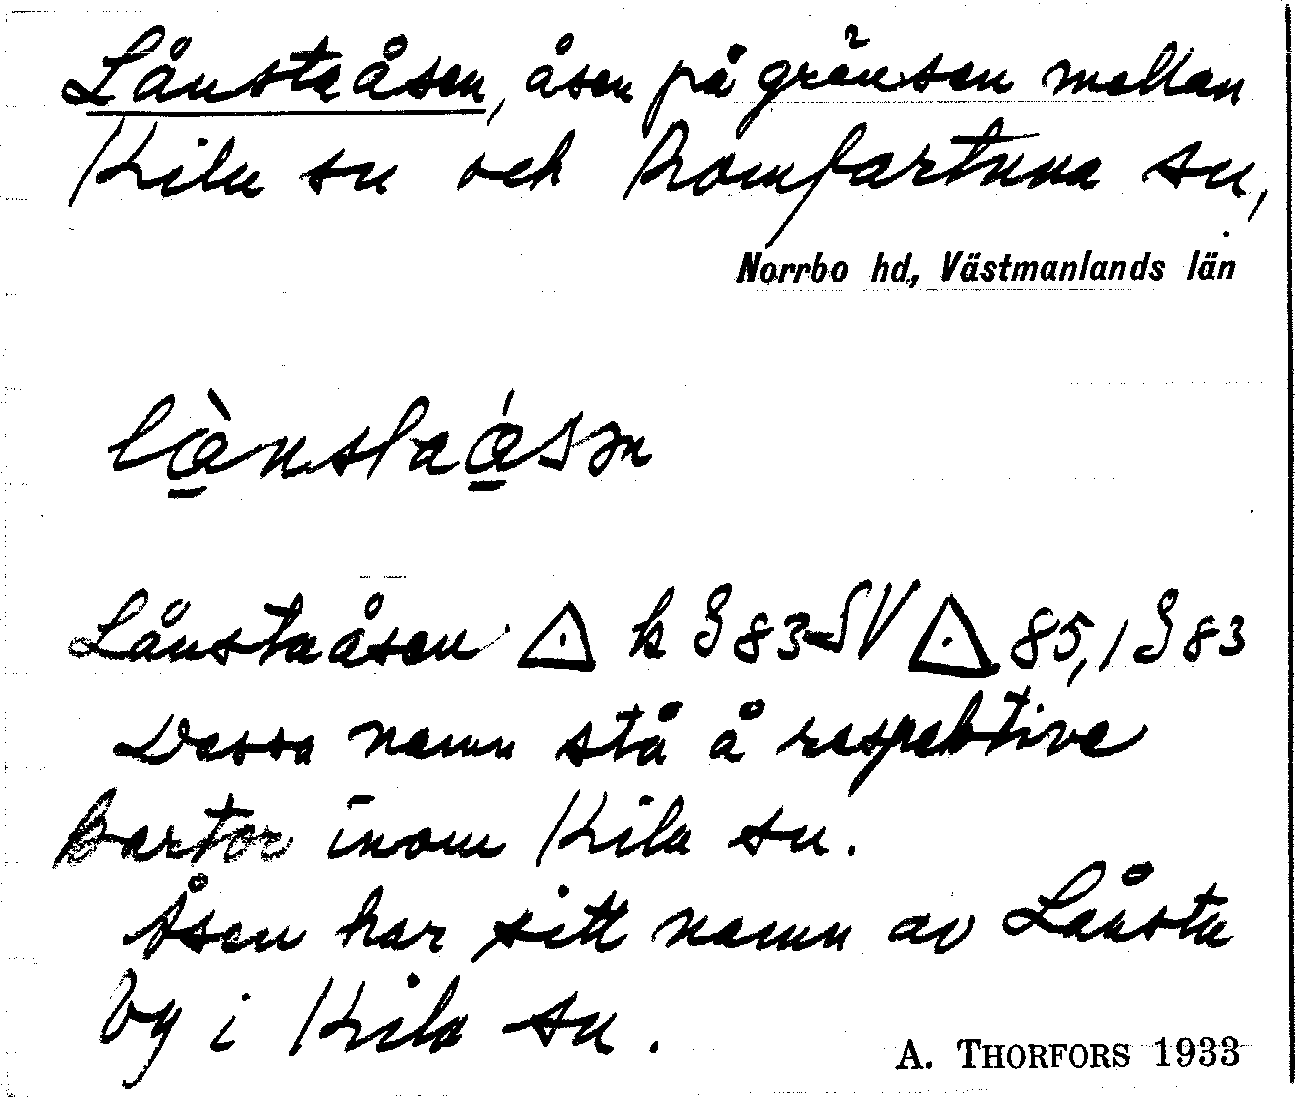 Lånstaåsen, åsen på gränsen mellan
Kila sn och Romfartuna sn,
Norrbo hd, Västmanlands län
Lånstaåsen k G 83 SV 85,1 G 83
Dessa namn stå å respektive
kartor inom Kila sn.
Åsen har sitt namn av Lånsta
by i Kila sn.
A. THORFORS 1933